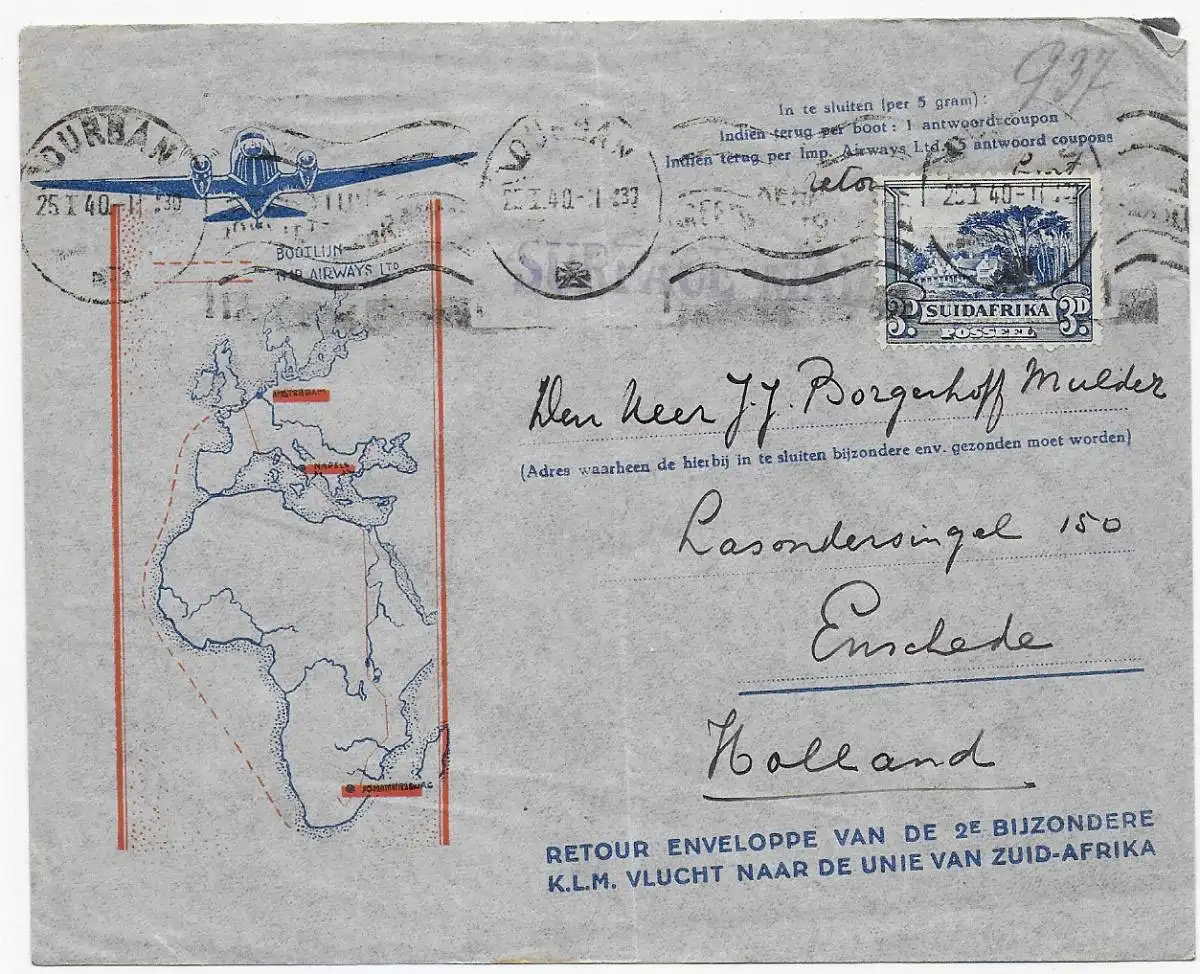 937
In te sluiten (per 5 gram):
Indien terug per boot: 1 antwoord:coupon
Indien terug per Imp. Airways Ltd. 5 antwoord coupons
retour
DURBAN
25 I 40
DURBAN
25 I 40
25 I 40
BOOTLIJN
IMP. AIRWAYS LTD
SURFACE MAIL
3D. SUIDAFRIKA 3D
POSSEEL
AMSTERDAM
NAPELS
JOHANNESBURG
Den Heer J.J. Borgerhoff Mulder
(Adres waarheen de hierbij in te sluiten bijzondere env. gezonden moet worden)
Lasondersingel 150
Enschede
Holland
RETOUR ENVELOPPE VAN DE 2E BIJZONDERE
K.L.M. VLUCHT NAAR DE UNIE VAN ZUID-AFRIKA